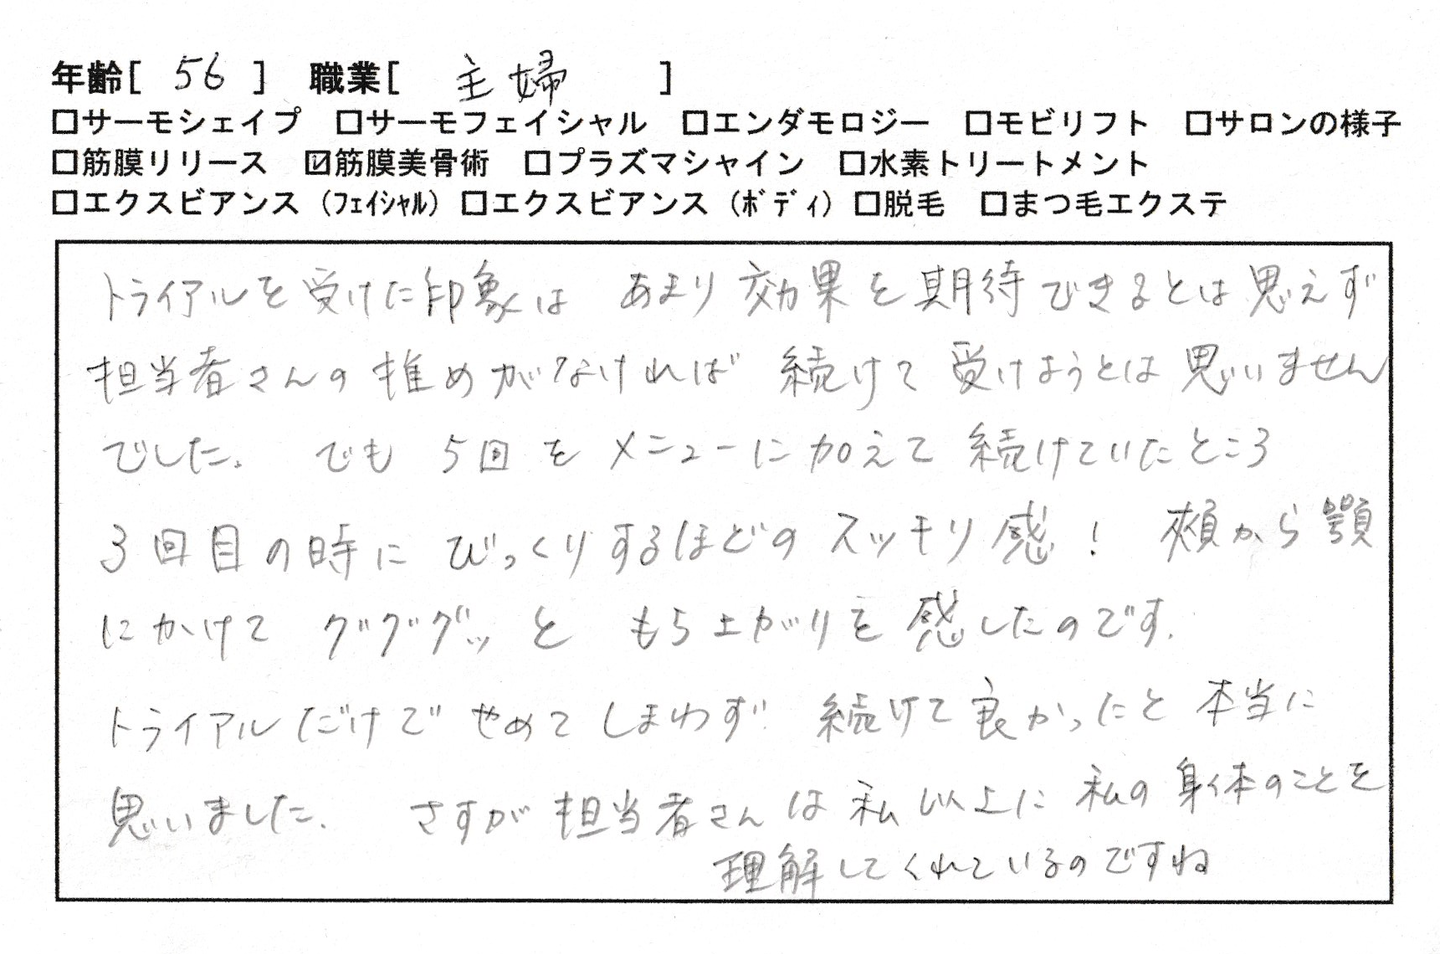 年齢[ 56 ] 職業[ 主婦 ]
□サーモシェイプ □サーモフェイシャル □エンダモロジー □モビリフト □サロンの様子
□筋膜リリース ☑筋膜美骨術 □プラズマシャイン □水素トリートメント
□エクスビアンス（ﾌｪｲｼｬﾙ）□エクスビアンス（ﾎﾞﾃﾞｨ）□脱毛 □まつ毛エクステ
トライアルを受けた印象は あまり効果を期待できるとは思えず
担当者さんの推めがなければ 続けて受けようとは思いません
でした。 でも 5回を メニューに加えて続けていたところ
3回目の時に びっくりするほどのスッキリ感！ 頬から顎
にかけて グググッと もち上がりを感じたのです。
トライアルだけで やめてしまわず 続けて良かったと 本当に
思いました。 さすが担当者さんは私以上に私の身体のことを
理解してくれているのですね